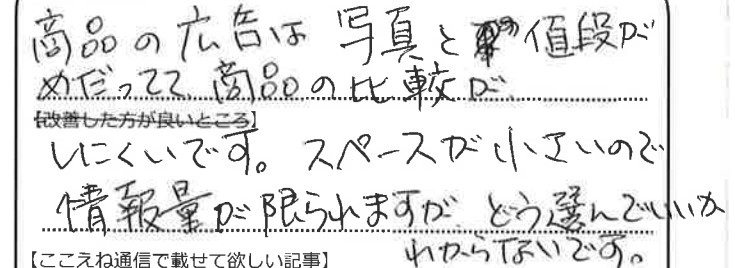 商品の広告は写真と値段が
めだってて、商品の比較が、
【改善した方が良いところ】
しにくいです。スペースが小さいので
情報量が限られますが、どう選んでいいか
わからないです。
【ここえね通信で載せて欲しい記事】